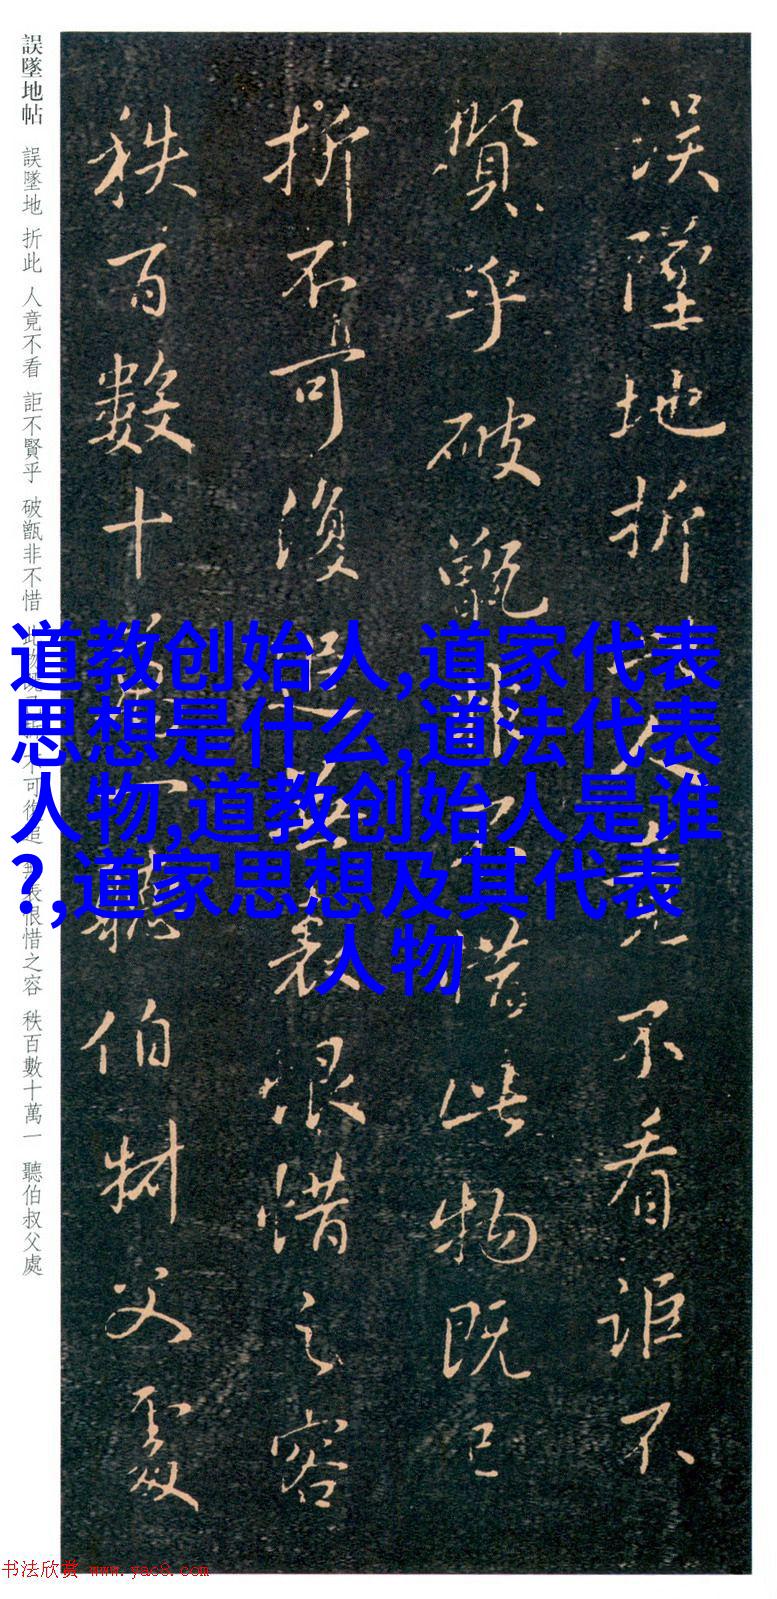 道教创始人,道家代表
思想是什么,道法代表
人物,道教创始人是谁
?,道家思想及其代表
人物
誤墜地折此人竟不看詎不
賢乎破甑非不惜此物既已
折不可復追無表恨惜之容
秩百數十萬一聽伯叔父處
誤墜地帖 誤墜地 折此 人竟不看 詎不賢乎 破甑非不惜 此物既已折 不可復追 無表恨惜之容 秩百數十萬一 聽伯叔父處
书法欣赏 www.yac8.com